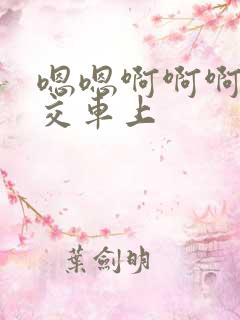 嗯嗯啊啊啊
交車上
葉劍明